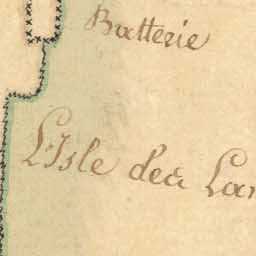 Batterie
L'Isle des